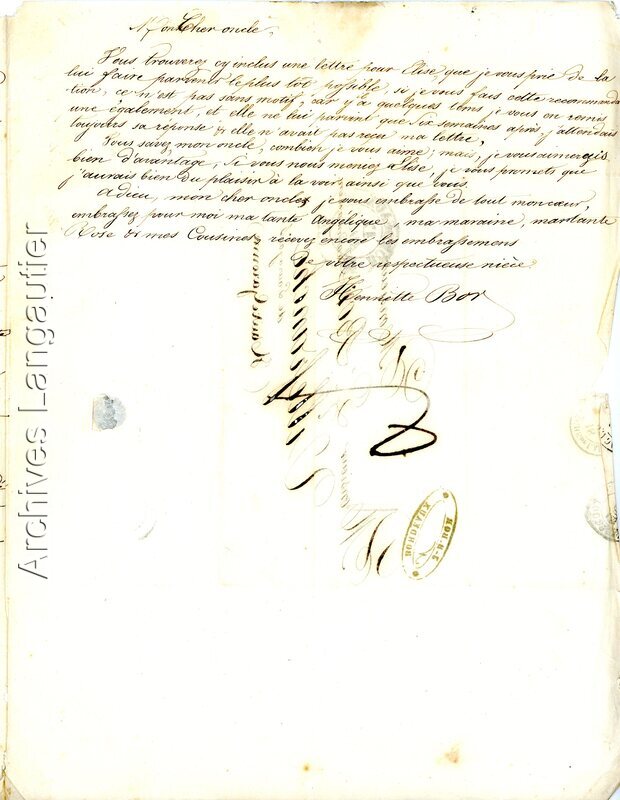 Mon Cher oncle,
Vous trouverez cy inclus une lettre pour Elise que je vous prie de la
lui faire parvenir le plus tôt possible, si je vous fais cette recommanda
tion, ce n'est pas sans motif, car y'a quelques tems je vous en remis
une également, et elle ne lui parvint que six semaines après j'attendais
toujours sa réponse & elle n'avait pas reçu ma lettre,
Vous savez mon oncle, combien je vous aime; mais, je vous aimerais
bien d'avantage, si vous nous meniez Elise, je vous promets que
j'aurais bien du plaisir à la voir, ainsi que vous.
Adieu, mon cher oncle, je vous embrasse de tout mon cœur,
embrassez pour moi ma tante Angélique, ma maraine, ma tante
Rose & mes Cousines, recevez encore les embrassemens
De votre respectueuse nièce
Henriette Bor
Archives Langautier
BORDEAUX